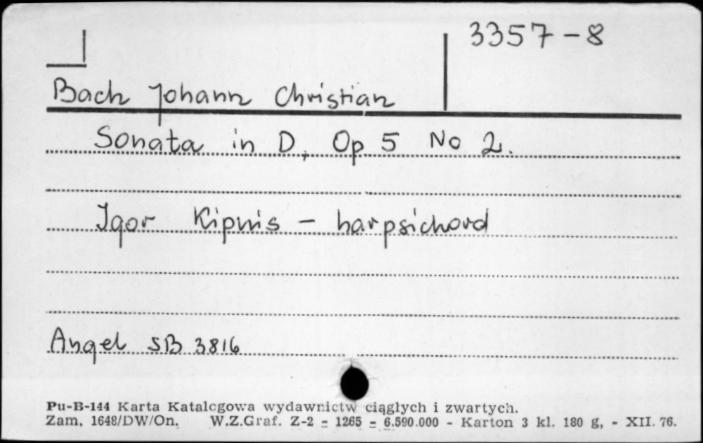 3357-8
Bach Johann Christian
Sonata in D, Op 5 No 2.
Igor Kipnis - harpsichord
Angel SB 3816
Pu-B-144 Karta Katalogowa wydawnictw ciągłych i zwartych.
Zam. 1648/DW/On. W.Z.Graf. Z-2 = 1265 = 6.590.000 - Karton 3 kl. 180 g, - XII. 76.